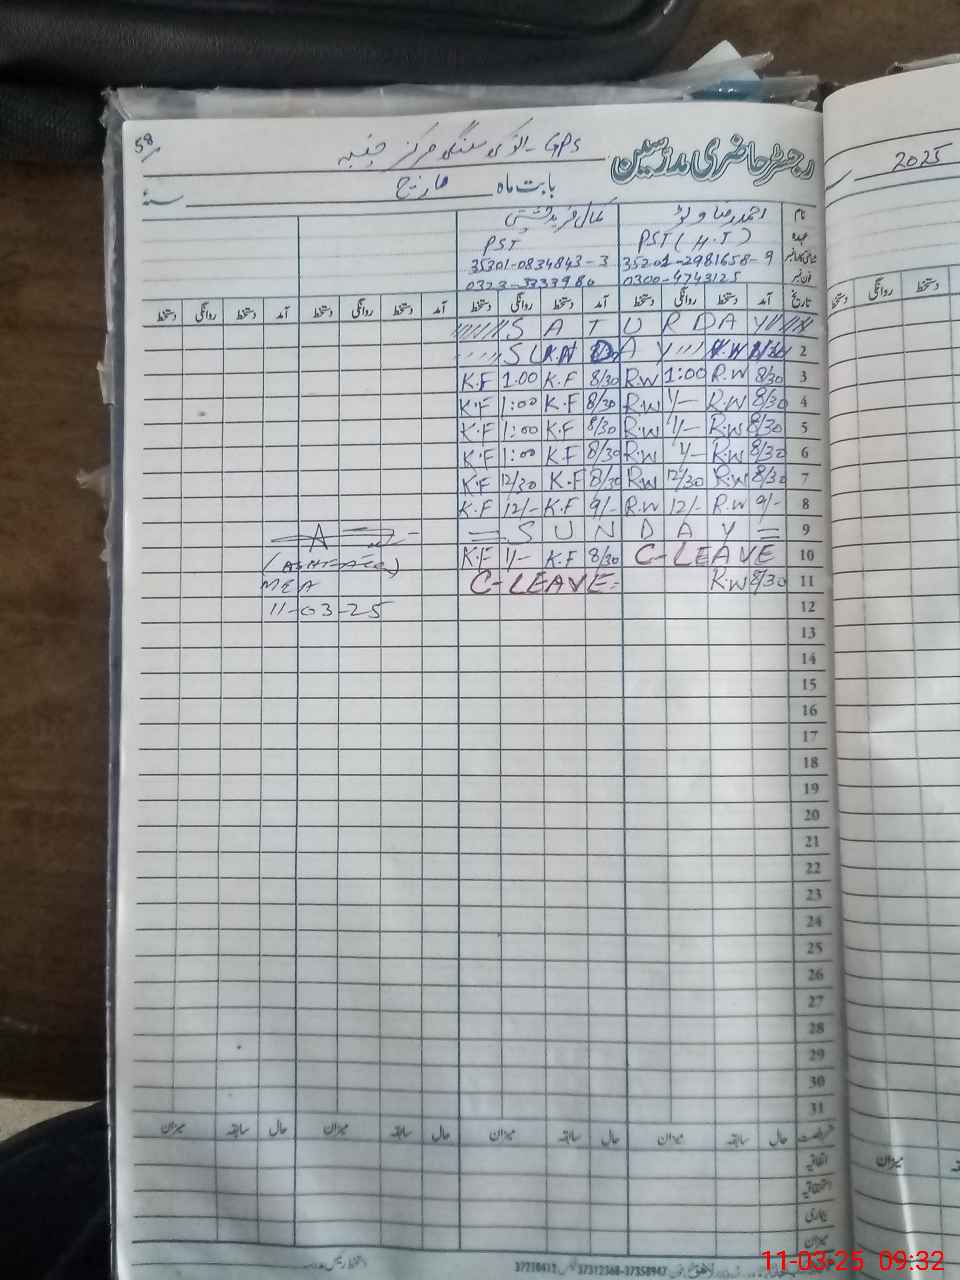 58
GPS
رجسٹر حاضری مدرسین
2025
بابت ماہ مارچ سنہ
نام احمد رضا وٹو کمال فرید چشتی
عہدہ PST (H.T) PST
35201-2981658-9 35301-0834843-3
0300-4743125 0323-3333980
تاریخ آمد دستخط روانگی دستخط آمد دستخط روانگی دستخط آمد دستخط روانگی دستخط آمد دستخط روانگی دستخط
SATURDAY
2 SUNDAY
3 8/30 R.W 1:00 R.W 8/30 K.F 1.00 K.F
4 8/30 R.W 1/- R.W 8/30 K.F 1:00 K.F
5 8/30 R.W 1/- R.W 8/30 K.F 1:00 K.F
6 8/30 R.W 1/- R.W 8/30 K.F 1:00 K.F
7 8/30 R.W 12/30 R.W 8/30 K.F 12/30 K.F
8 9/- R.W 12/- R.W 9/- K.F 12/- K.F
9 = SUNDAY =
10 C-LEAVE 8/30 K.F 1/- K.F
11 8/30 R.W C-LEAVE
MEA
12 11-03-25
13
14
15
16
17
18
19
20
21
22
23
24
25
26
27
28
29
30
31
حال سابقہ میزان حال سابقہ میزان حال سابقہ میزان حال سابقہ میزان
اتفاقیہ
استحقاقیہ
بیماری
میزان
میزان
11-03-25 09:32